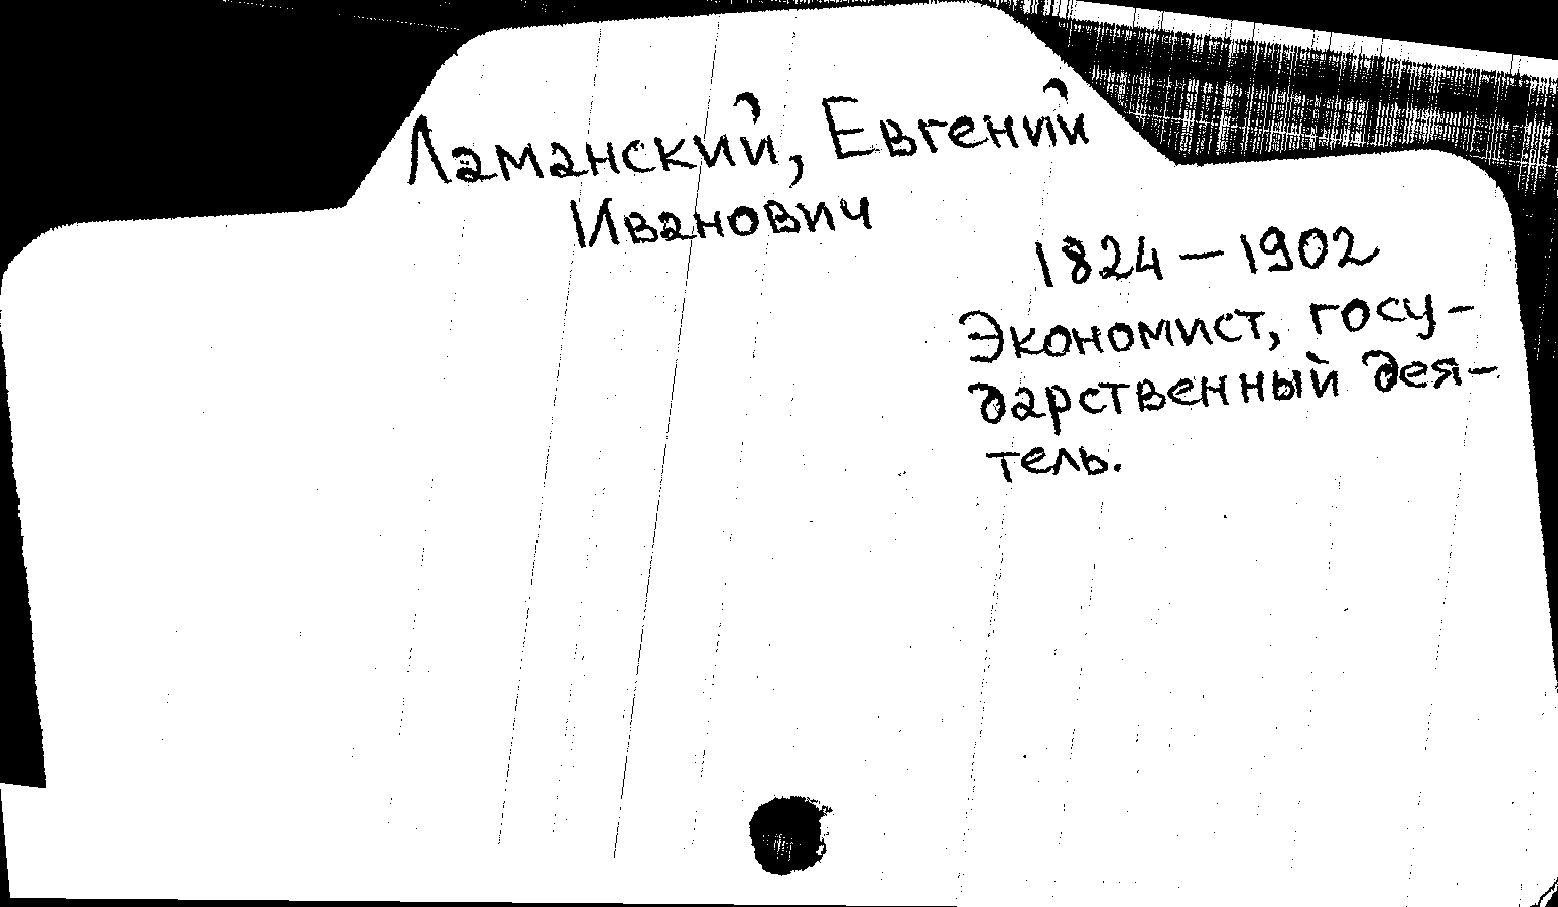 Ламанский, Евгений
Иванович
1824 – 1902
Экономист, госу-
дарственный дея-
тель.